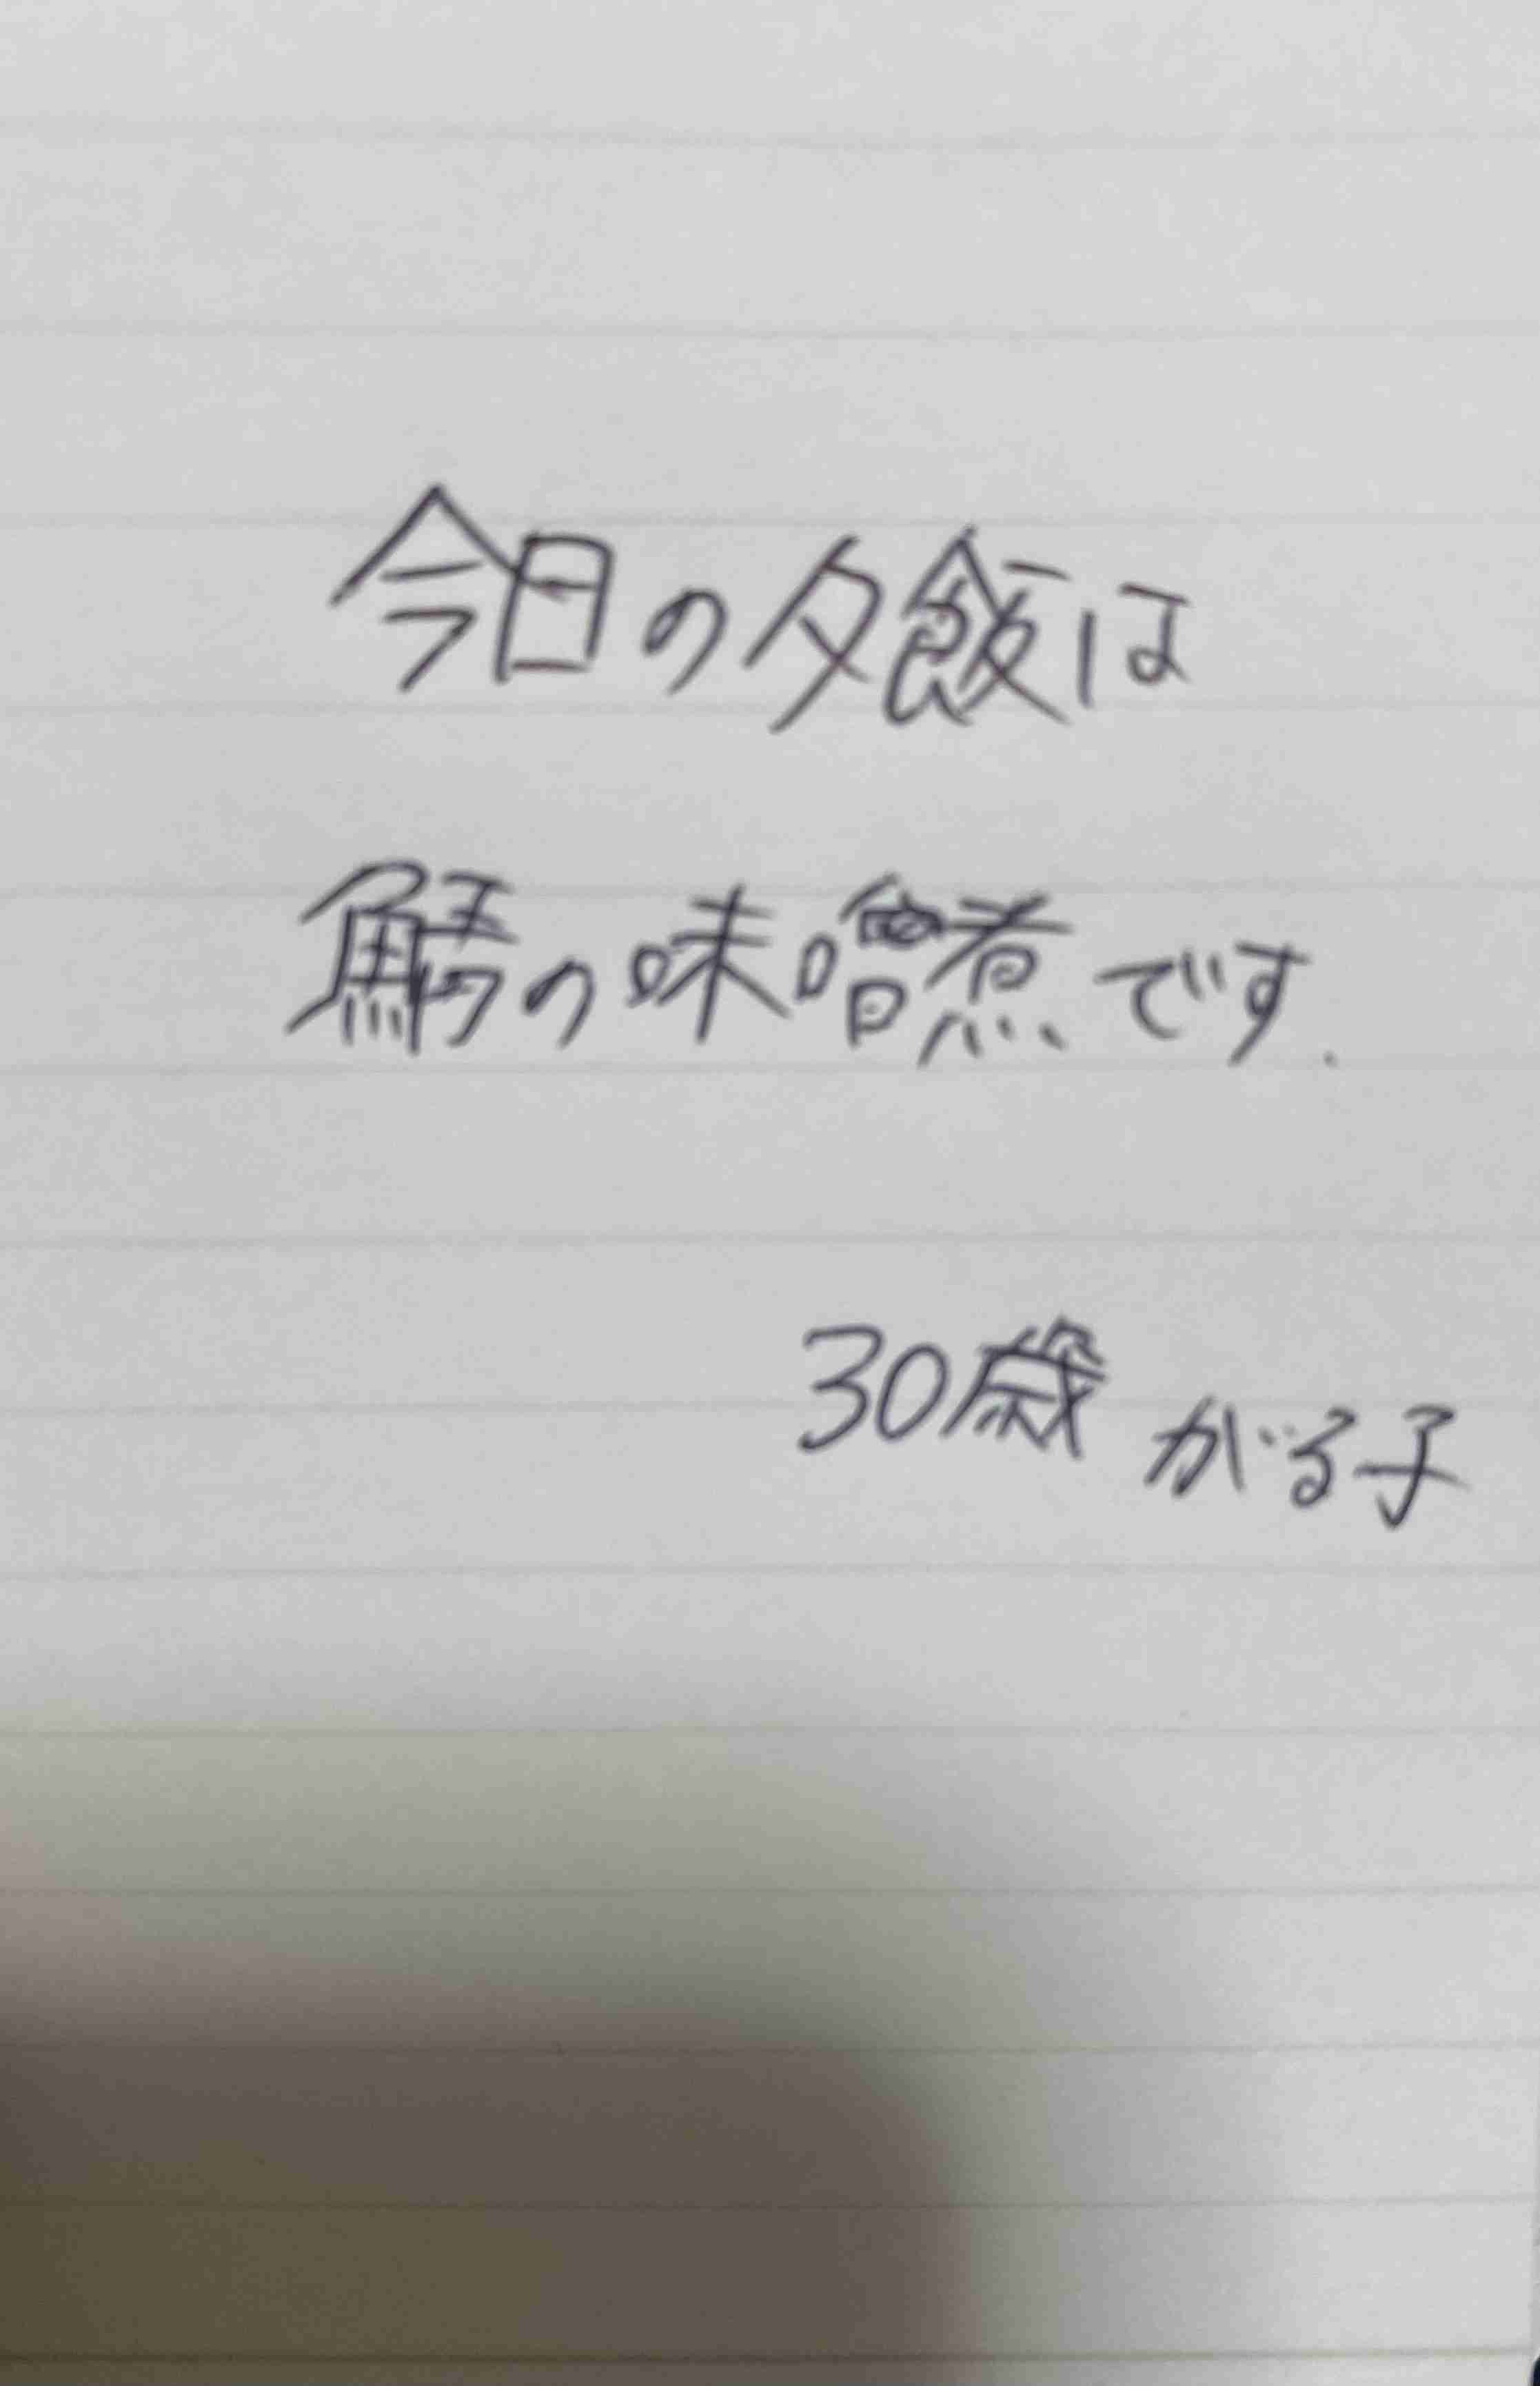 今日の夕飯は
鯖の味噌煮です.
30歳 がる子